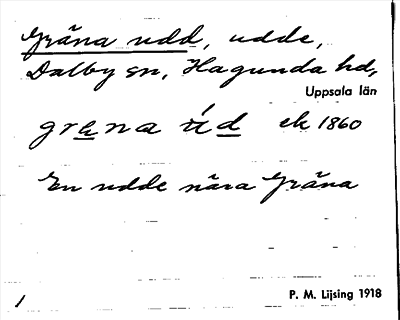 Gräna udd, udde,
Dalby sn, Hagunda hd,
Uppsala län
grana úd ek 1860
En udde nära Gräna
1 P. M. Lijsing 1918